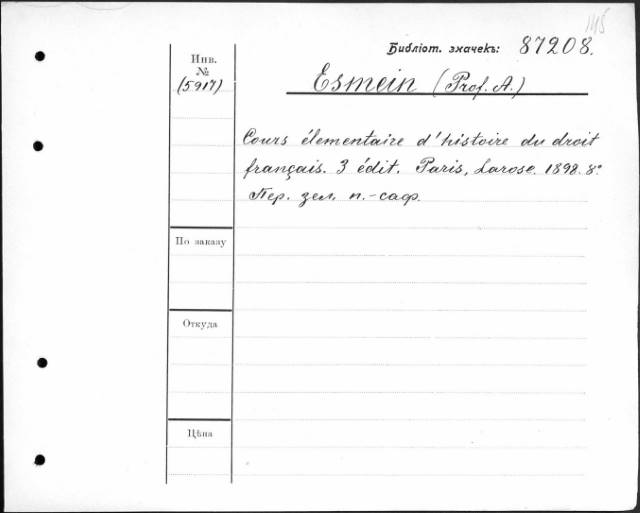 1115
Библіот. значекъ: 87208.
Инв.
№
(5917)
Esmein (Prof. A.)
Cours élementaire d'histoire du droit
français. 3 édit. Paris, Larose. 1898. 8°
Пер. зел. п.-саф.
По заказу
Откуда
Цѣна